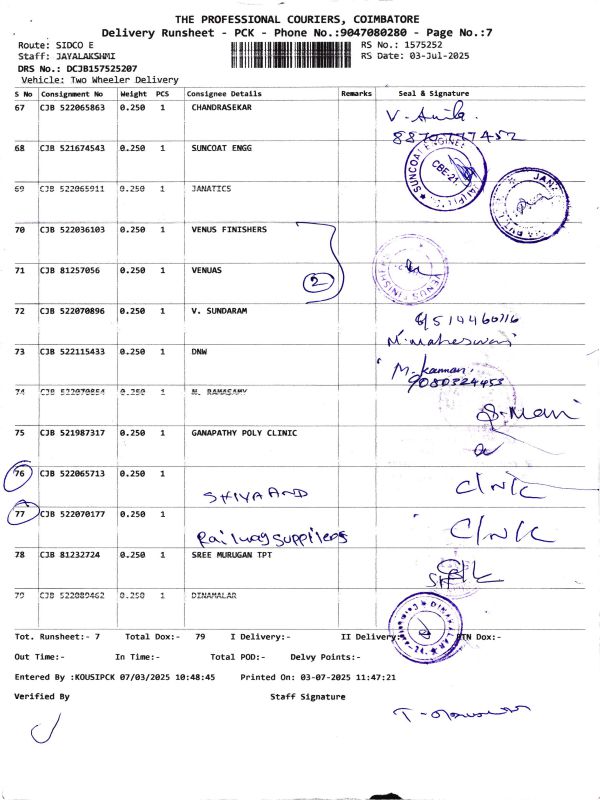 THE PROFESSIONAL COURIERS, COIMBATORE
Delivery Runsheet - PCK - Phone No.:9047080280 - Page No.:7
Route: SIDCO E RS No.: 1575252
Staff: JAYALAKSHMI RS Date: 03-Jul-2025
DRS No.: DCJB157525207
Vehicle: Two Wheeler Delivery
S No Consignment No Weight PCS Consignee Details Remarks Seal & Signature
67 CJB 522065863 0.250 1 CHANDRASEKAR V. Anila
8870777452
68 CJB 521674543 0.250 1 SUNCOAT ENGG SUNCOAT ENGINEE CBE-21.
69 CJB 522065911 0.250 1 JANATICS
70 CJB 522036103 0.250 1 VENUS FINISHERS
71 CJB 81257056 0.250 1 VENUAS 2 VENUS FINISHE
72 CJB 522070896 0.250 1 V. SUNDARAM
M. maheswari
73 CJB 522115433 0.250 1 DNW M. kannan.
9080324453
74 CJB 522070854 0.250 1 M. RAMASAMY S. Mani
75 CJB 521987317 0.250 1 GANAPATHY POLY CLINIC
76 CJB 522065713 0.250 1 C/N/C
SHIVA AND
77 CJB 522070177 0.250 1 C/N/C
Railway suppliers
78 CJB 81232724 0.250 1 SREE MURUGAN TPT
79 CJB 522089462 0.250 1 DINAMALAR DINAMALAR
Tot. Runsheet:- 7 Total Dox:- 79 I Delivery:- II Delivery:- RTN Dox:-
Out Time:- In Time:- Total POD:- Delvy Points:-
Entered By :KOUSIPCK 07/03/2025 10:48:45 Printed On: 03-07-2025 11:47:21
Verified By Staff Signature